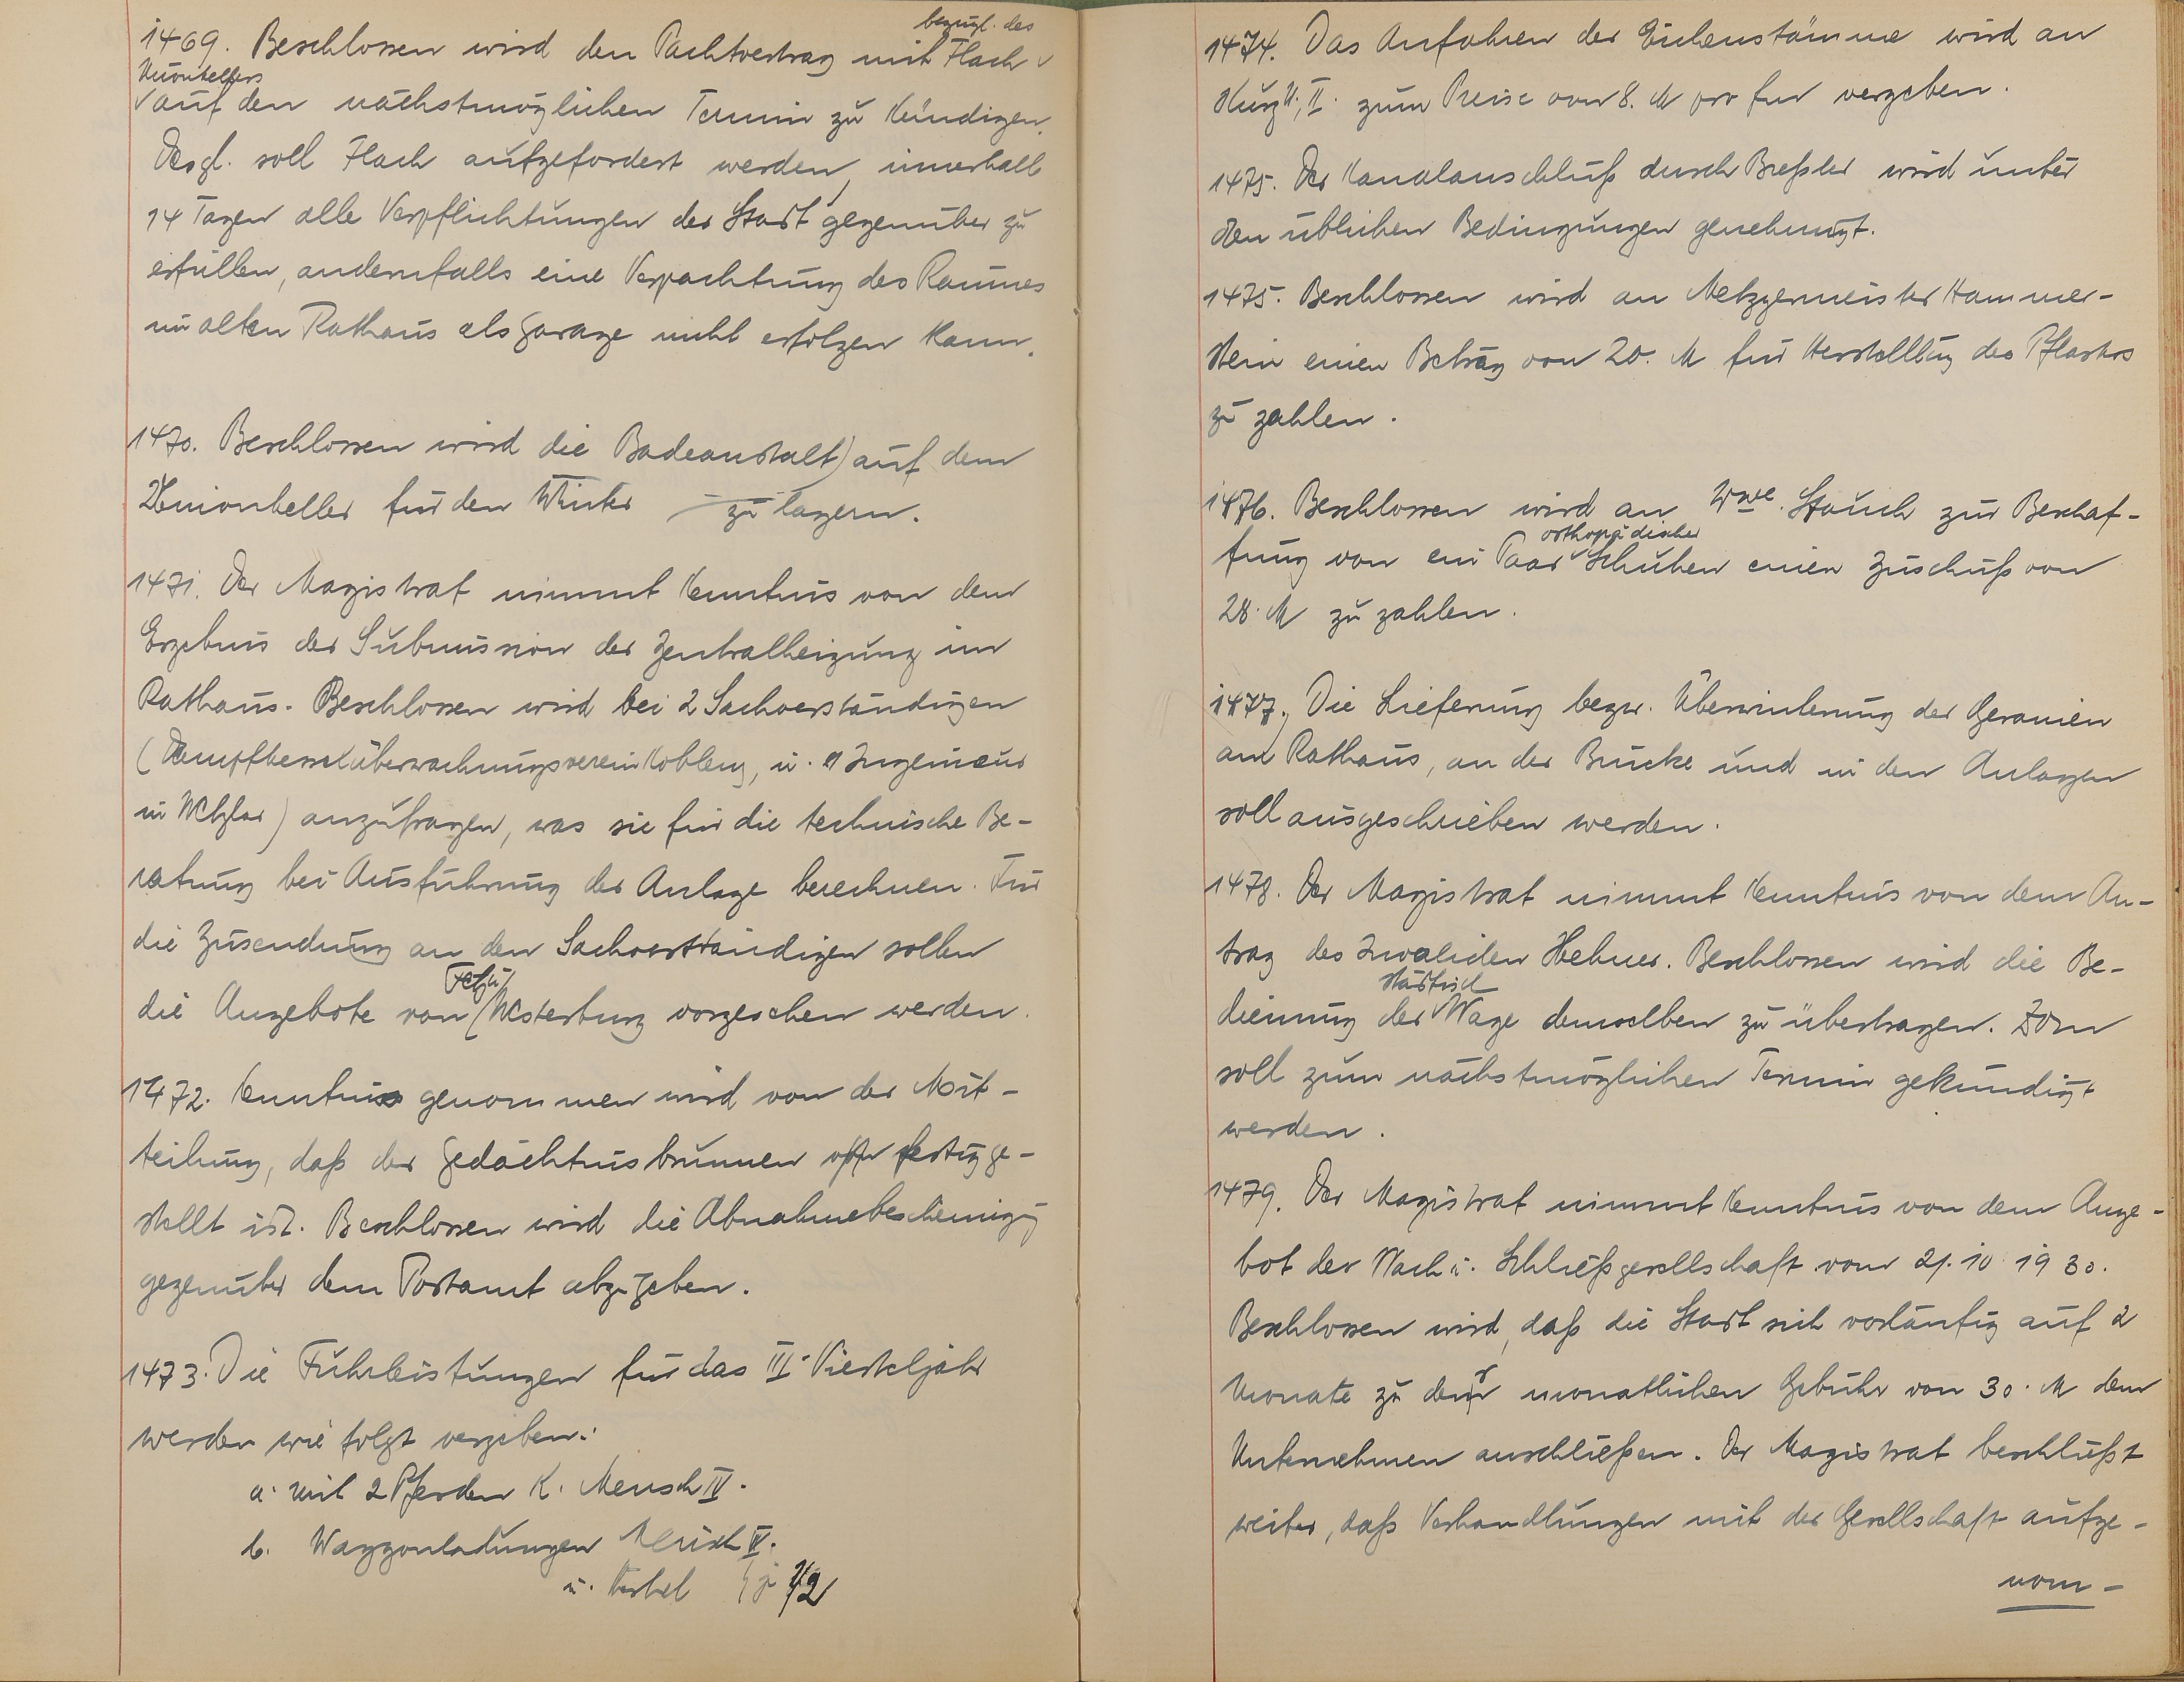 bezügl. des
1469. Beschlossen wird den Pachtvertrag mit Flach
Unionkellers
auf den nächstmöglichen Termin zu kündigen.
Desgl. soll Flach aufgefordert werden, innerhalb
14 Tagen alle Verpflichtungen der Stadt gegenüber zu
erfüllen, andernfalls eine Verpachtung des Raumes
im alten Rathaus als Garage nicht erfolgen kann.
1470. Beschlossen wird die Badeanstalt auf dem
Unionkeller für den Winter zu lagern.
1471. Der Magistrat nimmt Kenntnis von dem
Ergebnis der Submission der Zentralheizung im
Rathaus. Beschlossen wird bei 2 Sachverständigen
(Dampfkesselüberwachungsverein Koblenz, u. Ingenieur
in Wetzlar) anzufragen, was sie für die technische Be-
ratung bei Ausführung der Anlage berechnen. Für
die Zusendung an den Sachverständigen sollen
die Angebote von Westerburg vorgesehen werden.
1472. Kenntnis genommen wird von der Mit-
teilung, daß der Gedächtnisbrunnen fertigge-
stellt ist. Beschlossen wird die Abnahmebescheinigg
gegenüber dem Postamt abzugeben.
1473. Die Fuhrleistungen für das III. Vierteljahr
werden wie folgt vergeben:
a. mit 2 Pferden K. Mensch IV.
b. Waggonladungen Mensch IV.
u. je 1/2
1474. Das Anfahren der Eichenstämme wird an
II. zum Preise von 8. M pro fm vergeben.
1475. Der Kanalanschluß durch Breßler wird unter
den üblichen Bedingungen genehmigt.
1475. Beschlossen wird an Metzgermeister Hammer-
stein einen Betrag von 20. M für Herstellung des Pflasters
zu zahlen.
1476. Beschlossen wird an Wwe. Stauch zur Beschaf-
orthopädischer
fung von ein Paar Schuhen einen Zuschuß von
28. M zu zahlen.
1477. Die Lieferung bezw. Überwinterung der Geranien
am Rathaus, an der Brücke und in den Anlagen
soll ausgeschrieben werden.
1478. Der Magistrat nimmt Kenntnis von dem An-
trag des Invaliden Hehner. Beschlossen wird die Be-
städtisch
dienung der Wage demselben zu übertragen. Zorn
soll zum nächstmöglichen Termin gekündigt
werden.
1479. Der Magistrat nimmt Kenntnis von dem Ange-
bot der Wach u. Schließgesellschaft vom 21. 10. 1930.
Beschlossen wird, daß die Stadt sich vorläufig auf 2
Monate zu der monatlichen Gebühr von 30. M dem
Unternehmen anschließen. Der Magistrat beschließt
weiter, daß Verhandlungen mit der Gesellschaft aufge-
nom-